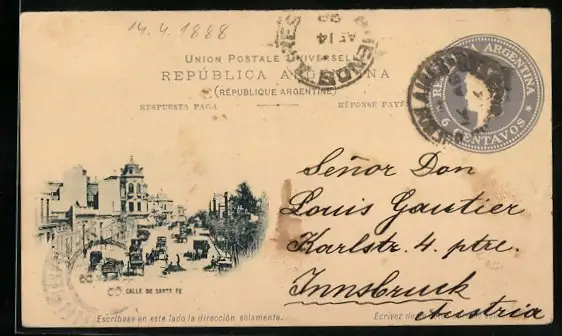 14. 4. 1888
UNION POSTALE UNIVERSELLE
REPÚBLICA ARGENTINA
(RÉPUBLIQUE ARGENTINE)
RESPUESTA PAGA
RÉPONSE PAYÉE
REPÚBLICA ARGENTINA
6 CENTAVOS
BUENOS AIRES
AB 14
Señor Don
Louis Gautier
Karlstr. 4. ptre.
Innsbruck
Austria
CALLE DE SANTA FE
Escríbase en este lado la dirección solamente.
Ecrivez de